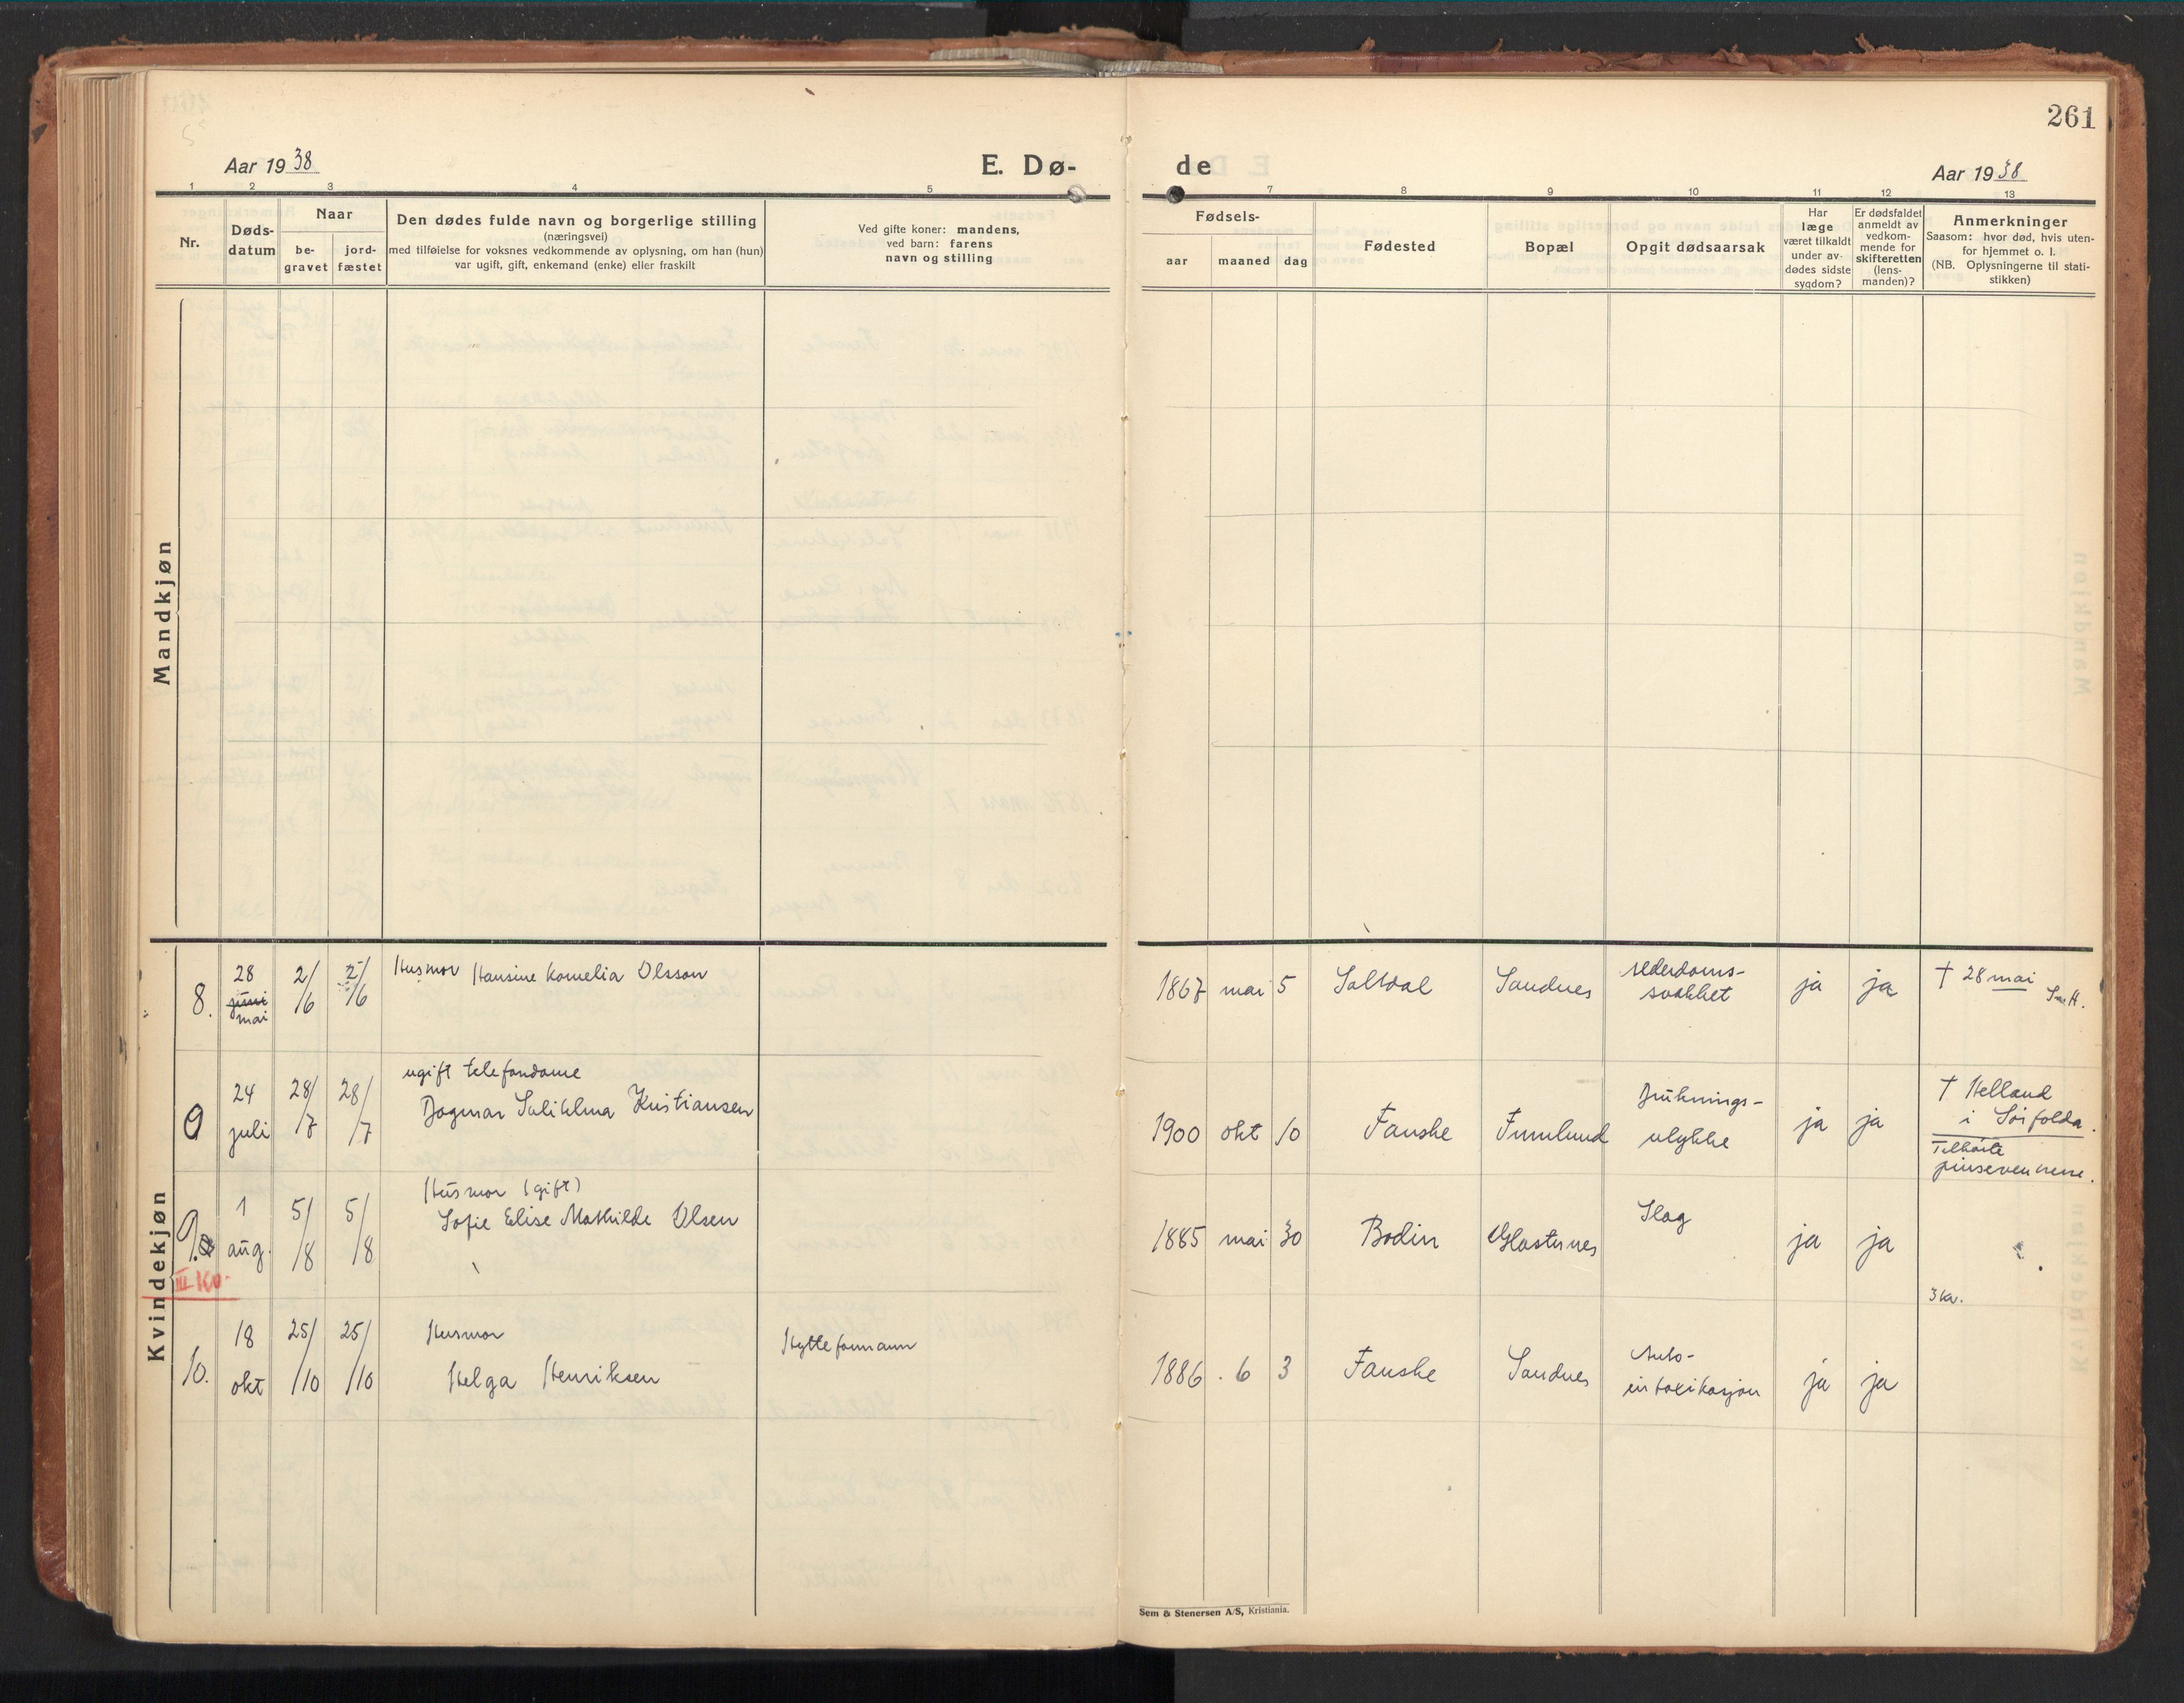 261
Aar 1938
E. Dø-
de
Aar 1938
1 2 3 4 5
7 8 9 10 11 12 13
Nr.
Døds-
datum
Naar
be-
gravet
jord-
fæstet
Den dødes fulde navn og borgerlige stilling
(næringsvei)
med tilføielse for voksnes vedkommende av oplysning, om han (hun)
var ugift, gift, enkemand (enke) eller fraskilt
Ved gifte koner: mandens,
ved barn: farens
navn og stilling
Fødsels-
aar
maaned
dag
Fødested
Bopæl
Opgit dødsaarsak
Har
læge
været tilkaldt
under av-
dødes sidste
sygdom?
Er dødsfaldet
anmeldt av
vedkom-
mende for
skifteretten
(lens-
manden)?
Anmerkninger
Saasom: hvor død, hvis uten-
for hjemmet o. l.
(NB. Oplysningerne til stati-
stikken)
Mandkjøn
Kvindekjøn
8.
28
juni
mai
2/
/6
2/
/6
Husmor Hansine Kornelia Olsson
1867 mai 5
Saltdal
Sandnes
Alderdoms-
svakhet
ja
ja
† 28 mai
9
24
juli
28/
/7
28/
/7
ugift telefondame
Dagmar Kristiansen
1900 okt 10
Fauske
Finnlund
Druknings-
ulykke
ja
ja
† Helland
i Sørfolda.
Tilhørte
pinsevennene.
9.
1
aug.
5/
/8
5/
/8
Husmor (gift)
Sofie Elise Mathilde Olsen
1885 mai 30
Bodin
Glastunes
Slag
ja
ja
III Kv.
3 kv.
10.
18
okt
25/
/10
25/
/10
Husmor
Helga Henriksen
Hytteformann
1886 . 6 3
Fauske
Sandnes
Auto-
intoxikasjon
ja
ja
Sem & Stenersen A/S, Kristiania.